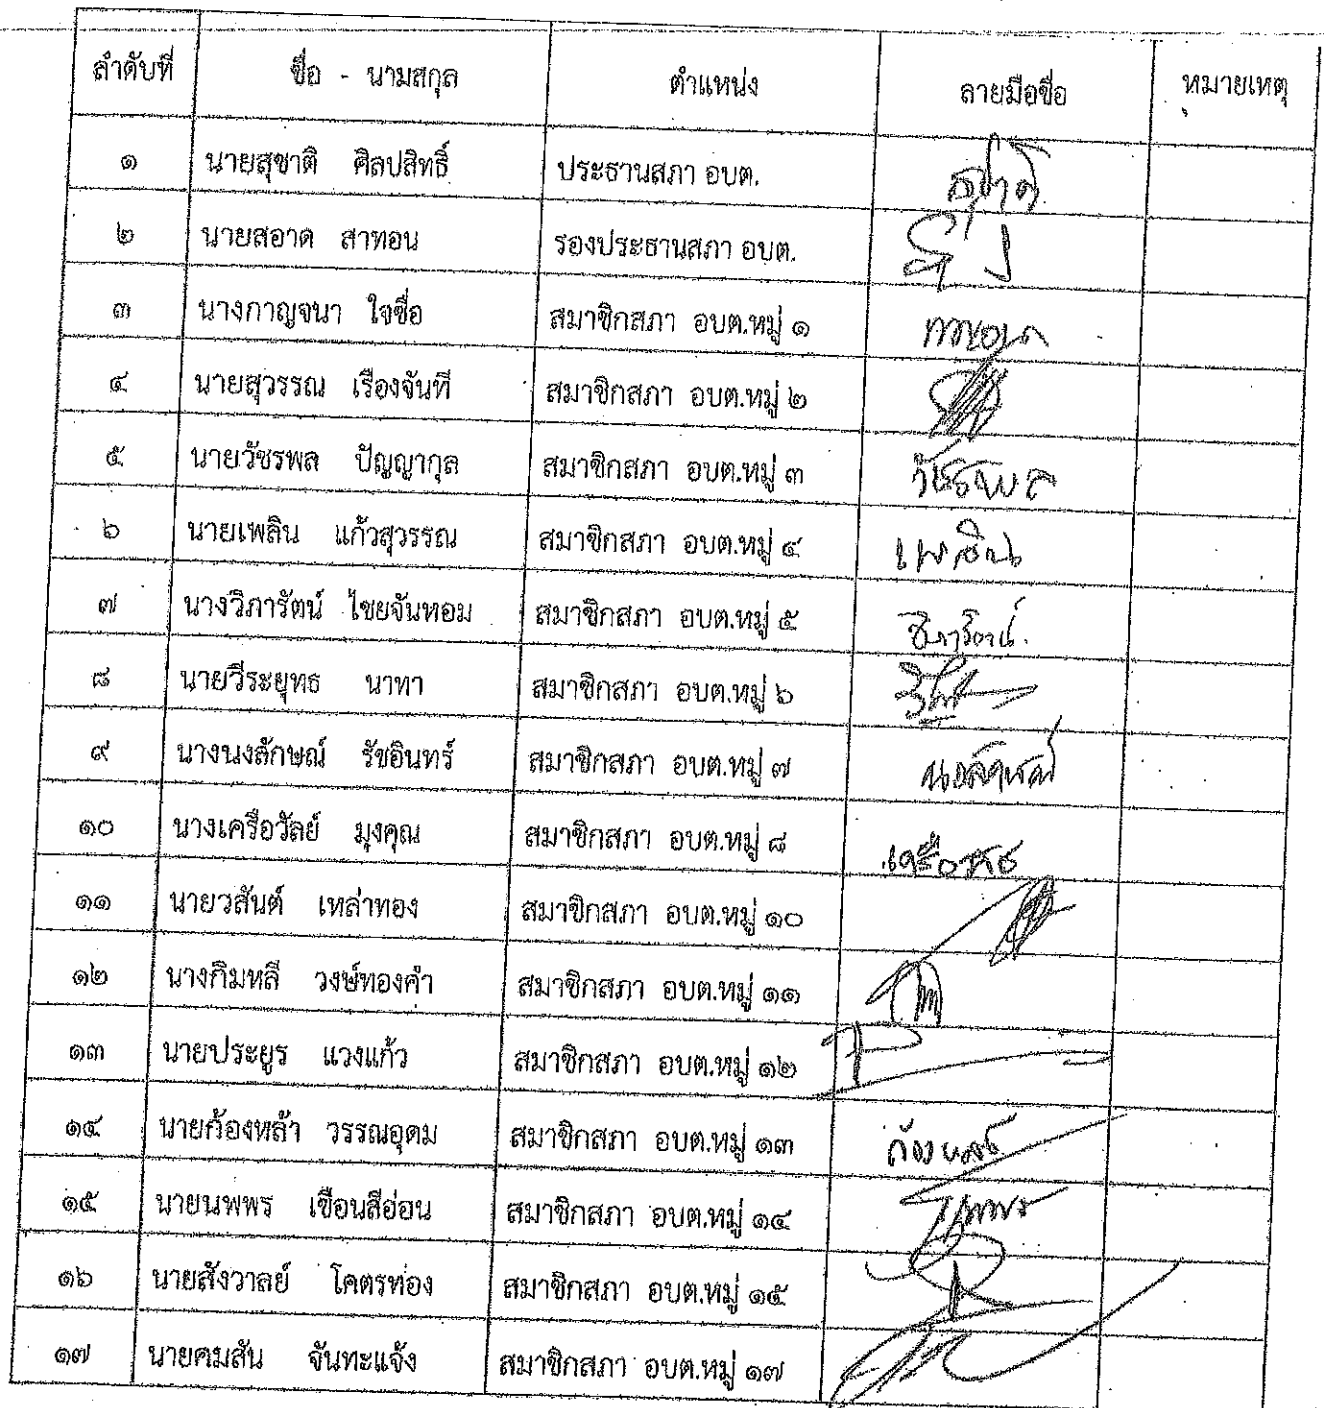 ลำดับที่ ชื่อ - นามสกุล ตำแหน่ง ลายมือชื่อ หมายเหตุ
๑ นายสุชาติ ศิลปสิทธิ์ ประธานสภา อบต. สุชาติ
๒ นายสอาด สาทอน รองประธานสภา อบต.
๓ นางกาญจนา ใจซื่อ สมาชิกสภา อบต.หมู่ ๑
๔ นายสุวรรณ เรืองจันที สมาชิกสภา อบต.หมู่ ๒
๕ นายวัชรพล ปัญญากุล สมาชิกสภา อบต.หมู่ ๓ วัชรพล
๖ นายเพลิน แก้วสุวรรณ สมาชิกสภา อบต.หมู่ ๔ เพลิน
๗ นางวิภารัตน์ ไชยจันหอม สมาชิกสภา อบต.หมู่ ๕ วิภารัตน์
๘ นายวีระยุทธ นาทา สมาชิกสภา อบต.หมู่ ๖
๙ นางนงลักษณ์ รัชอินทร์ สมาชิกสภา อบต.หมู่ ๗ นงลักษณ์
๑๐ นางเครือวัลย์ มุงคุณ สมาชิกสภา อบต.หมู่ ๘
๑๑ นายวสันต์ เหล่าทอง สมาชิกสภา อบต.หมู่ ๑๐
๑๒ นางกิมหลี วงษ์ทองคำ สมาชิกสภา อบต.หมู่ ๑๑
๑๓ นายประยูร แวงแก้ว สมาชิกสภา อบต.หมู่ ๑๒
๑๔ นายก้องหล้า วรรณอุดม สมาชิกสภา อบต.หมู่ ๑๓ ก้องหล้า
๑๕ นายนพพร เขือนสีอ่อน สมาชิกสภา อบต.หมู่ ๑๔ นพพร
๑๖ นายสังวาลย์ โคตรท่อง สมาชิกสภา อบต.หมู่ ๑๕
๑๗ นายคมสัน จันทะแจ้ง สมาชิกสภา อบต.หมู่ ๑๗